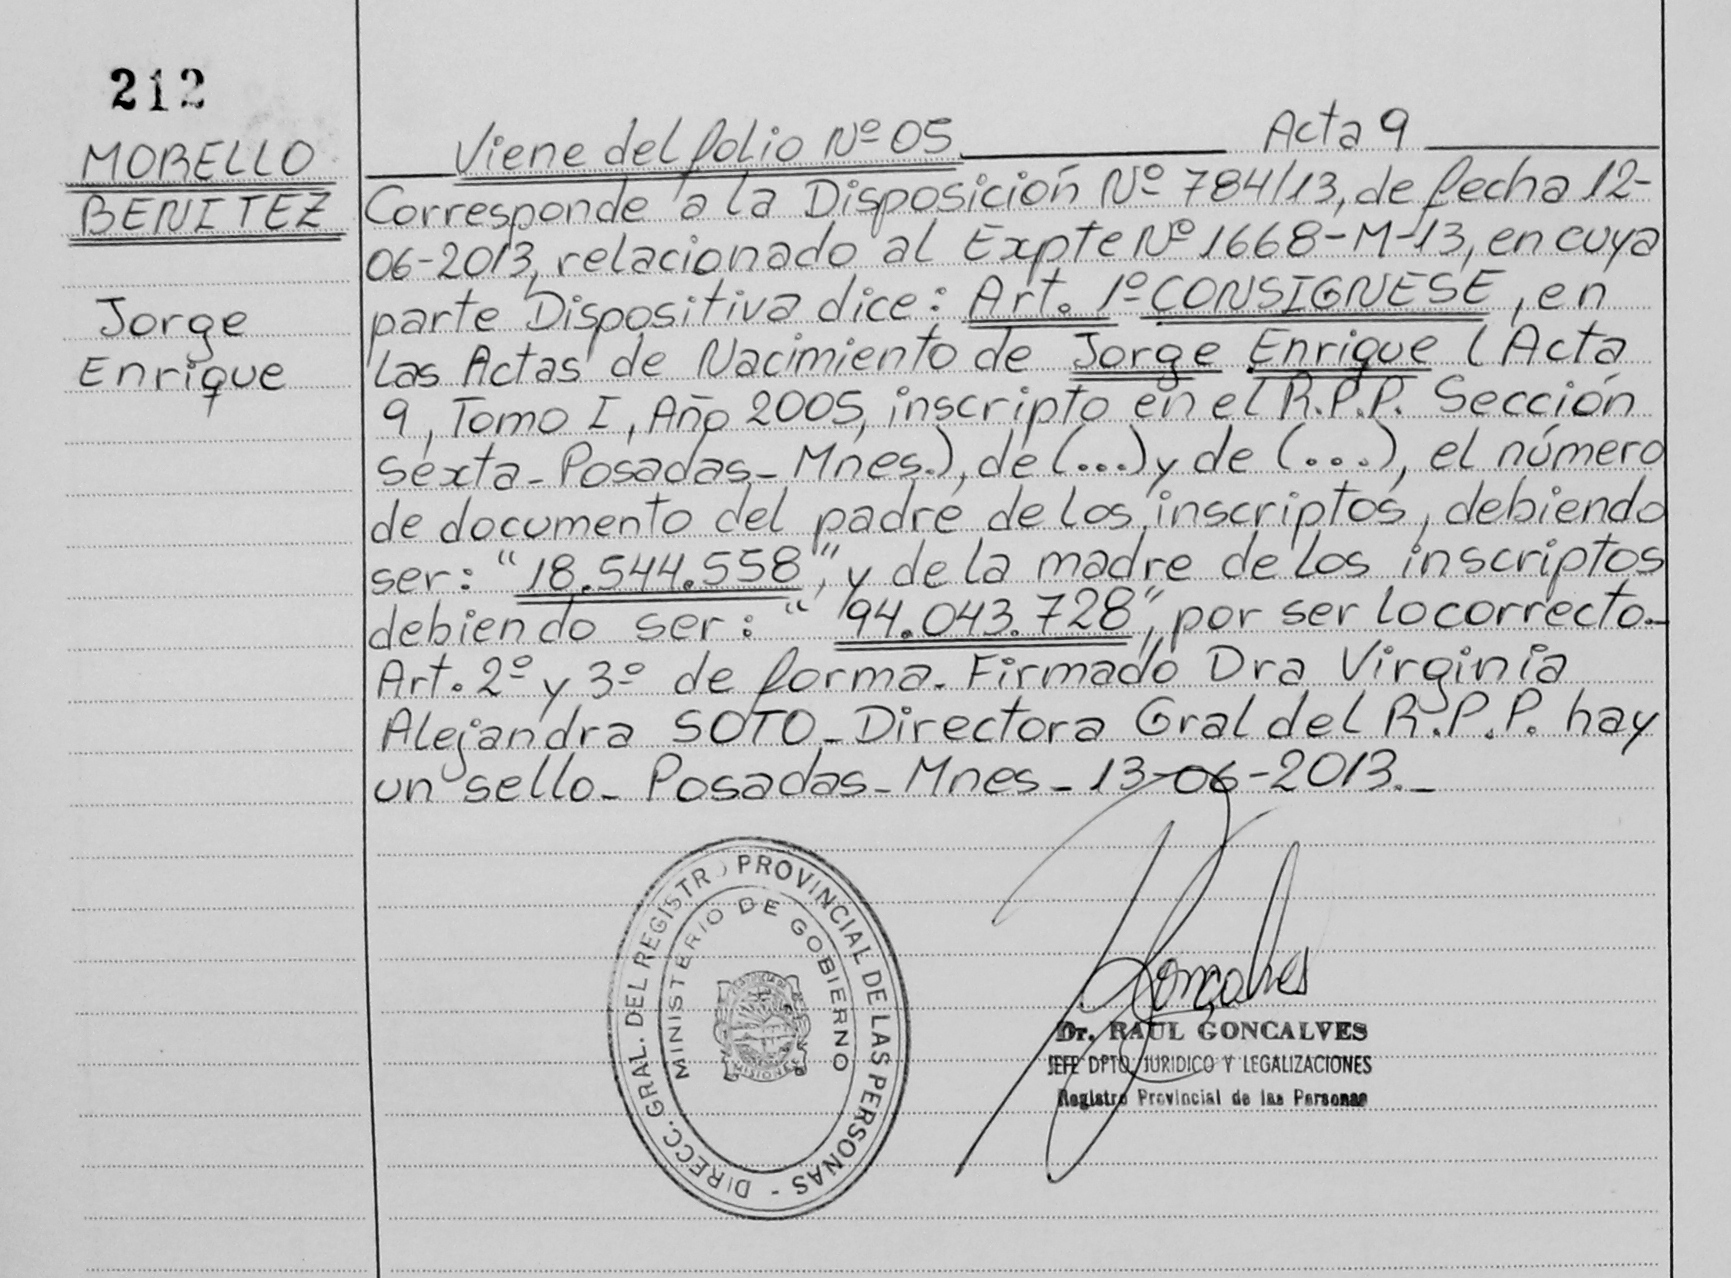 212
MORELLO
BENITEZ
Jorge
Enrique
Viene del folio Nº 05 Acta 9
Corresponde a la Disposición Nº 784/13, de fecha 12-
06-2013, relacionado al Expte Nº 1668-M-13, en cuya
parte Dispositiva dice: Art. 1º CONSIGNESE, en
las Actas de Nacimiento de Jorge Enrique (Acta
9, Tomo I, Año 2005, inscripto en el R.P.P. Sección
sexta-Posadas-Mnes.), de (...) y de (...), el número
de documento del padre de los inscriptos, debiendo
ser: "18.544.558", y de la madre de los inscriptos
debiendo ser: "94.043.728", por ser lo correcto.-
Art. 2º y 3º de forma. Firmado Dra Virginia
Alejandra SOTO-Directora Gral del R.P.P. hay
un sello- Posadas-Mnes-13-06-2013.-
DIRECC. GRAL. DEL REGISTRO PROVINCIAL DE LAS PERSONAS -
MINISTERIO DE GOBIERNO
Goncalves
Dr. RAUL GONCALVES
JEFE DPTO. JURIDICO Y LEGALIZACIONES
Registro Provincial de las Personas